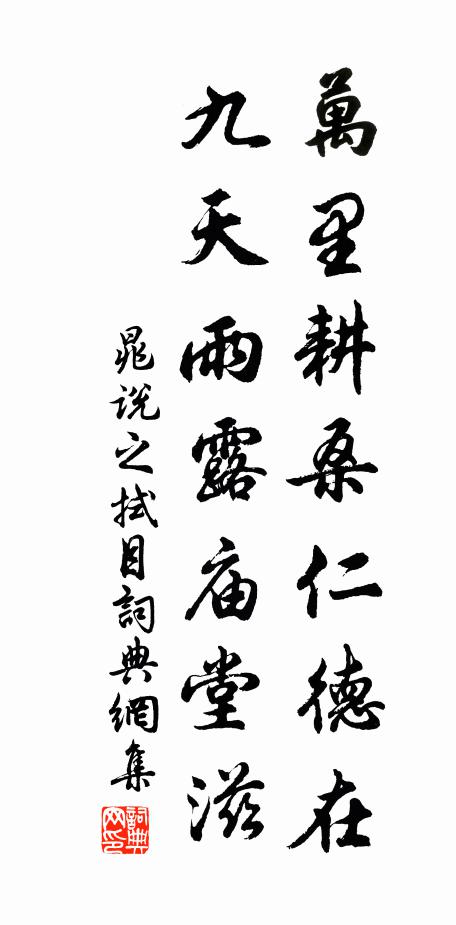 萬里耕桑仁德在
九天雨露庙堂滋
晁说之拭目詞典網集
詞典网印